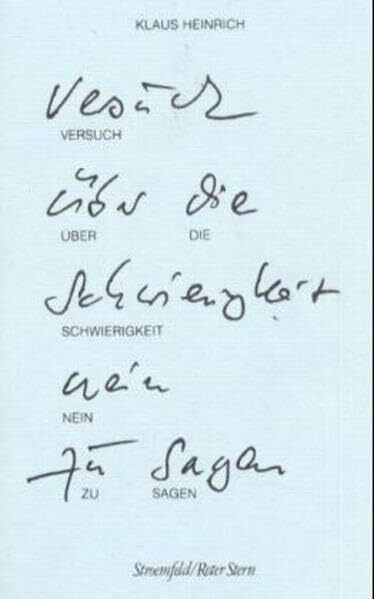 KLAUS HEINRICH
Versuch
VERSUCH
über die
ÜBER DIE
Schwierigkeit
SCHWIERIGKEIT
nein
NEIN
zu sagen
ZU SAGEN
Stroemfeld/Roter Stern